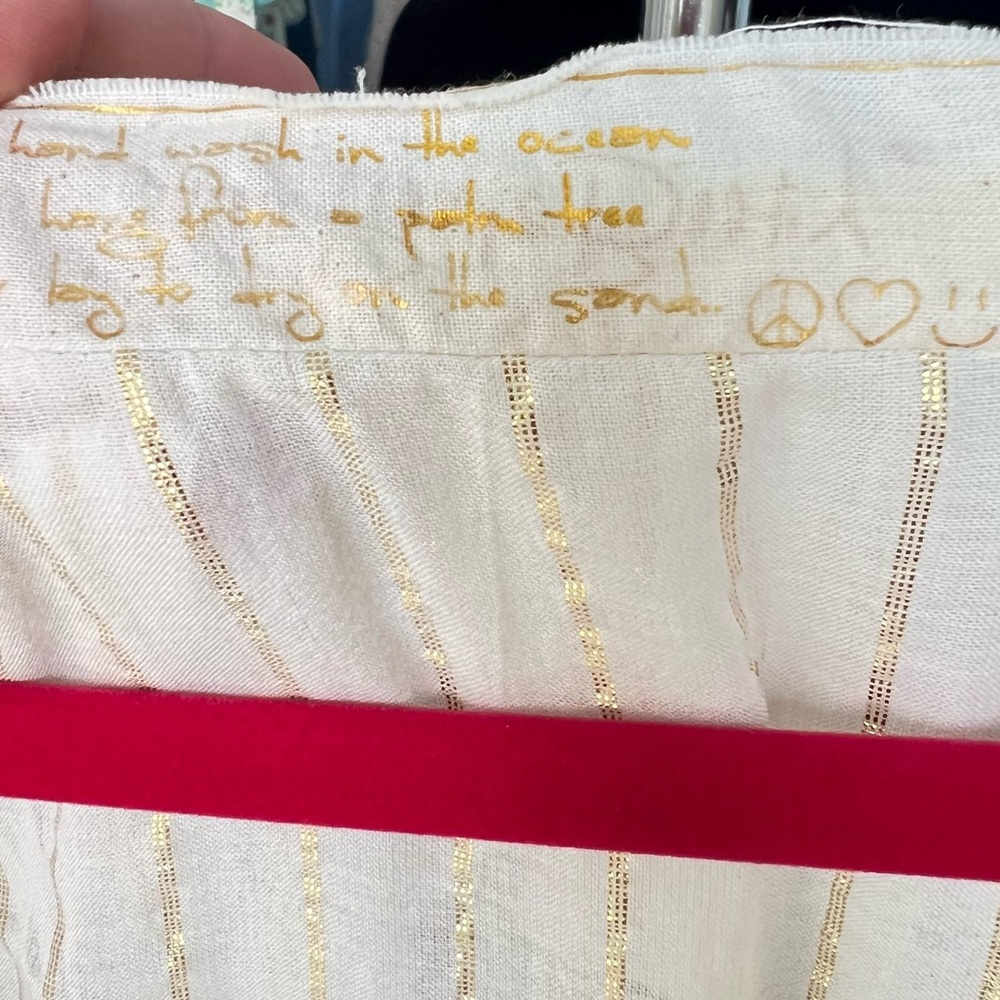 hand wash in the ocean
hang from a palm tree
lay to dry on the sand...